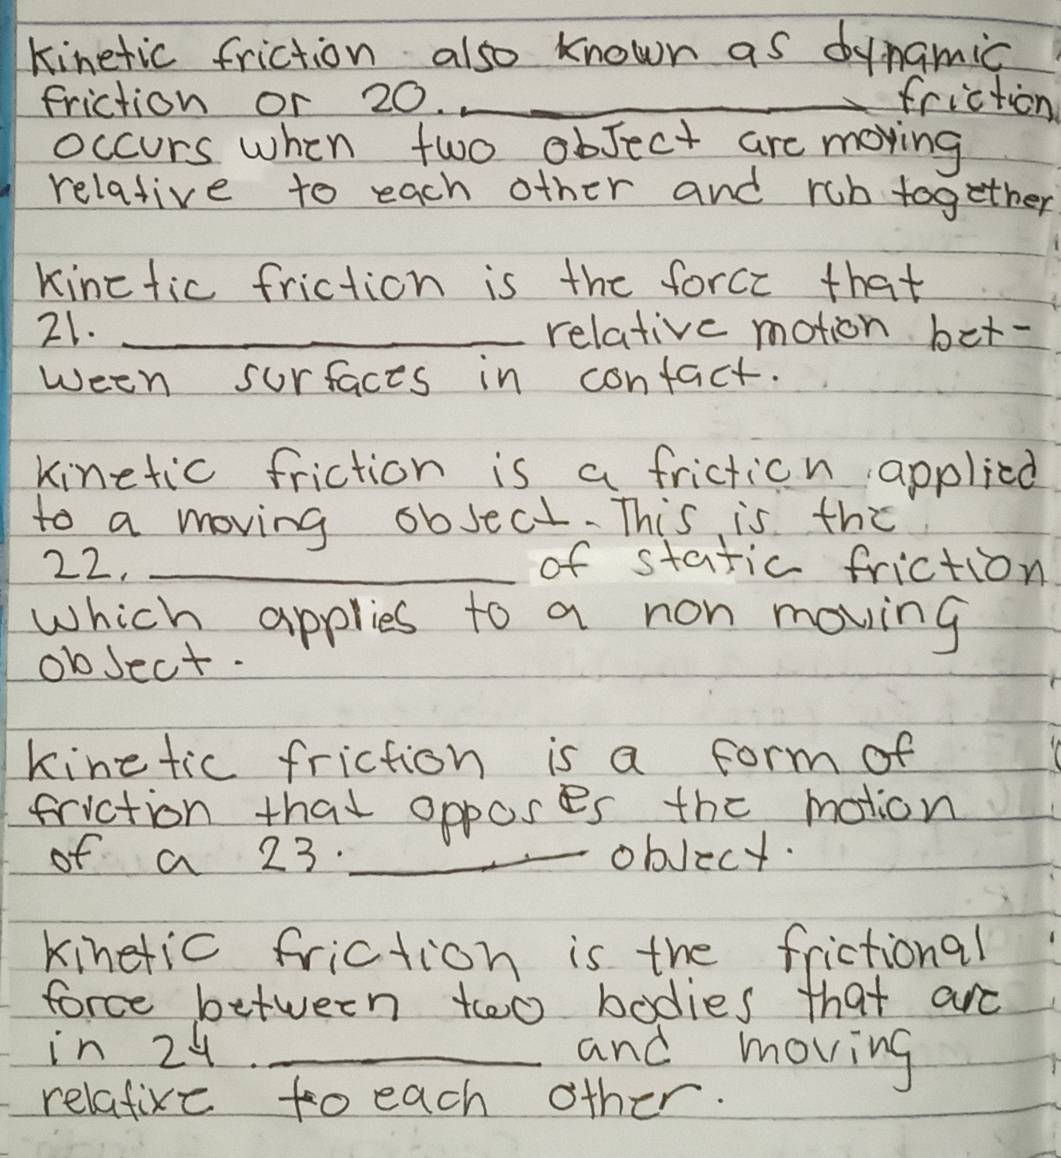 Kinetic friction also known as dynamic
friction or 20. ____________ friction
occurs when two object are moving
relative to each other and rub together
Kinetic friction is the force that
21. ____________ relative motion bet-
ween surfaces in contact.
Kinetic friction is a friction applied
to a moving object. This is the
22. ____________ of static friction
which applies to a non moving
object.
Kinetic friction is a form of
friction that opposes the motion
of a 23. ________ object.
Kinetic friction is the frictional
force between two bodies that are
in 24. ________ and moving
relative to each other.